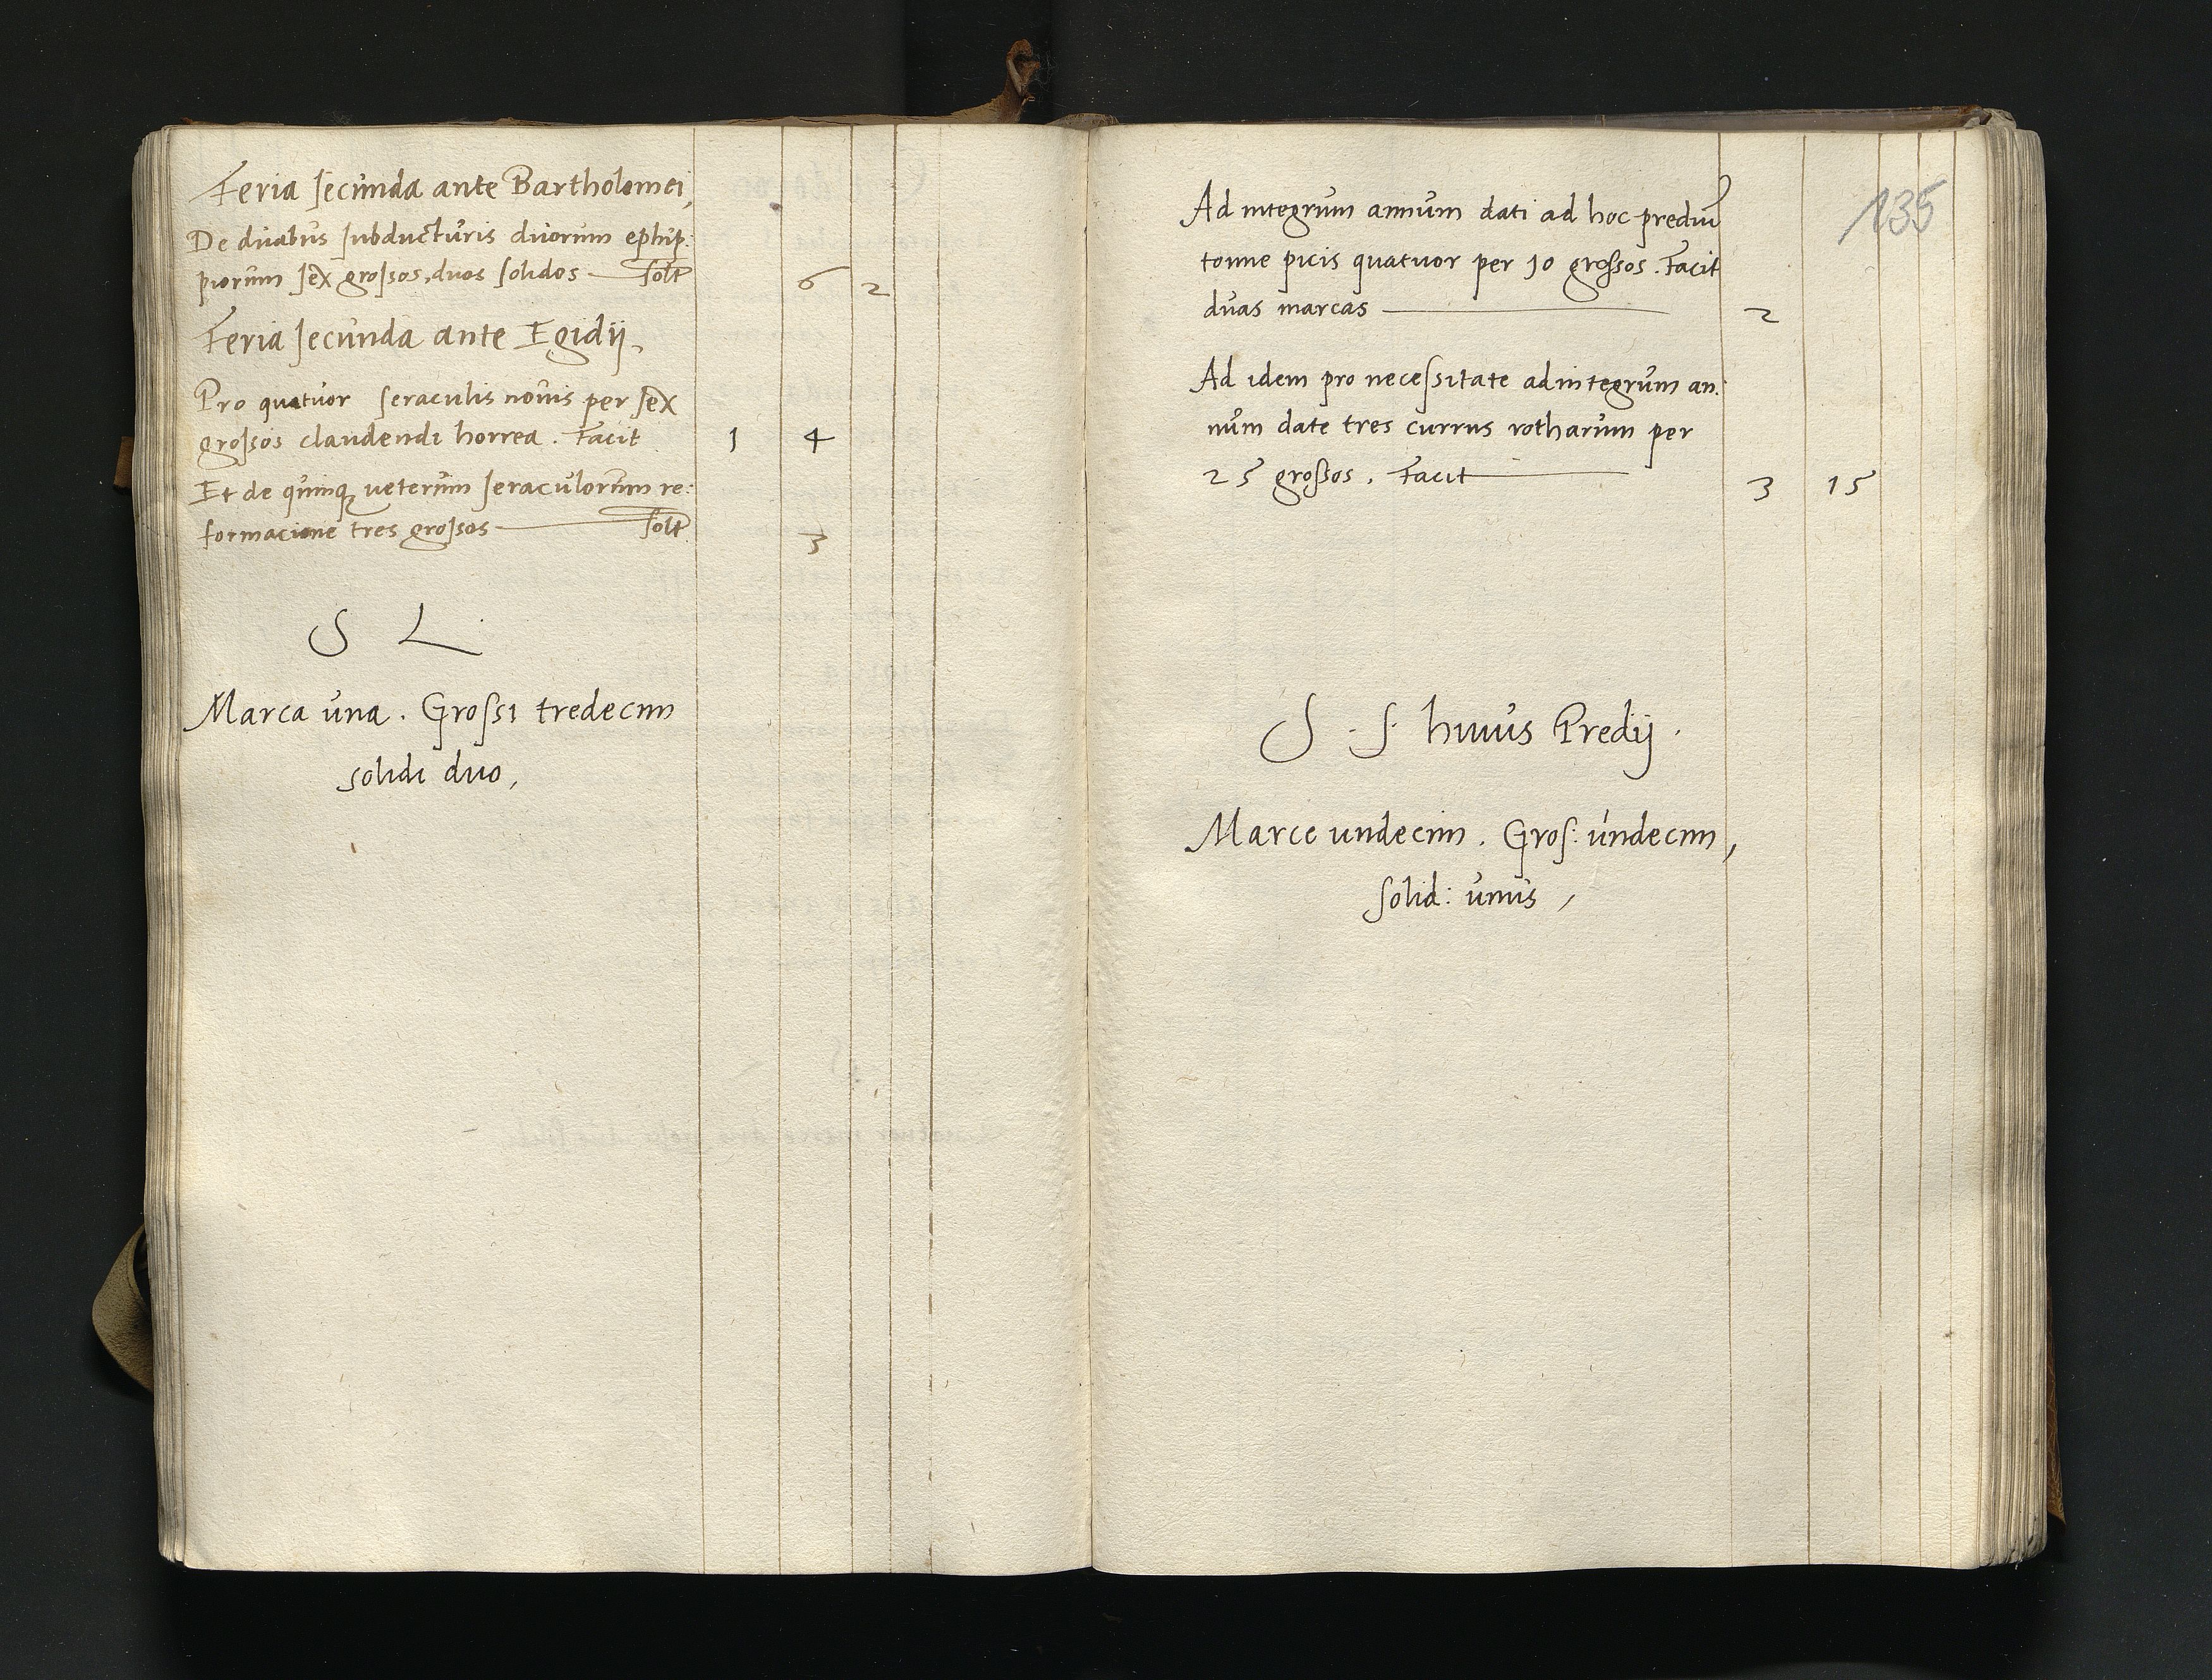 Feria secunda ante Bartholomei,
De duabus subducturis duorum ephip:
piorum sex grossos, duos solidos — solt 6 2
Feria secunda ante Egidij.
Pro quatuor seraculis novis per sex
grossos claudendi horrea. Facit 1 4
Et de quinq veterum seraculorum re:
formacione tres grossos — solt 3
S L
Marca una. Grossi tredecim
solidi duo,
135
Ad integrum annum dati ad hoc prediu
tonne picis quatuor per 10 grossos. Facit
duas marcas — 2
Ad idem pro necessitate ad integrum an:
num date tres currus rotharum per
25 grossos. Facit — 3 15
S. S. huius Predij.
Marce undecim. Gros: undecim,
solid: unus,